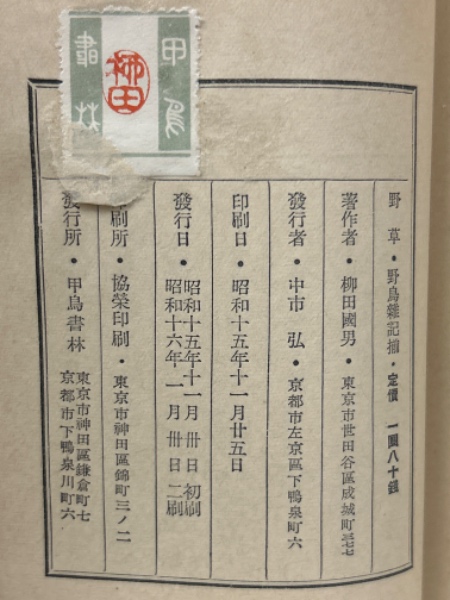 甲鳥
書林
柳田
野草・野鳥雜記・定價 一圓八十錢
著作者・柳田國男・東京市世田谷區成城町
發行者・中市弘・京都市左京區下鴨泉町六
印刷日・昭和十五年十一月廿五日
發行日・昭和十五年十一月卅日初刷
昭和十六年一月卅日二刷
印刷所・協榮印刷・東京市神田區錦町三ノ二
發行所・甲鳥書林 東京市神田區鎌倉町七
京都市下鴨泉川町六